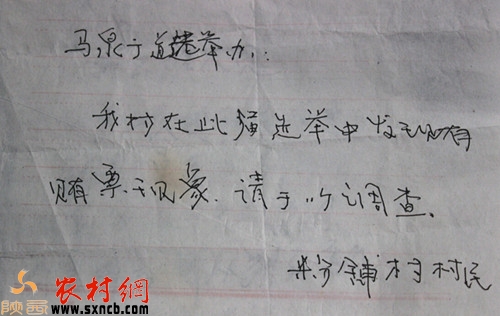 马泉亍道选举办:
我村在此强选举中发现有
贿票现象.请于以调查.
粉铺村村民
陕西
农村網
www.sxncb.com